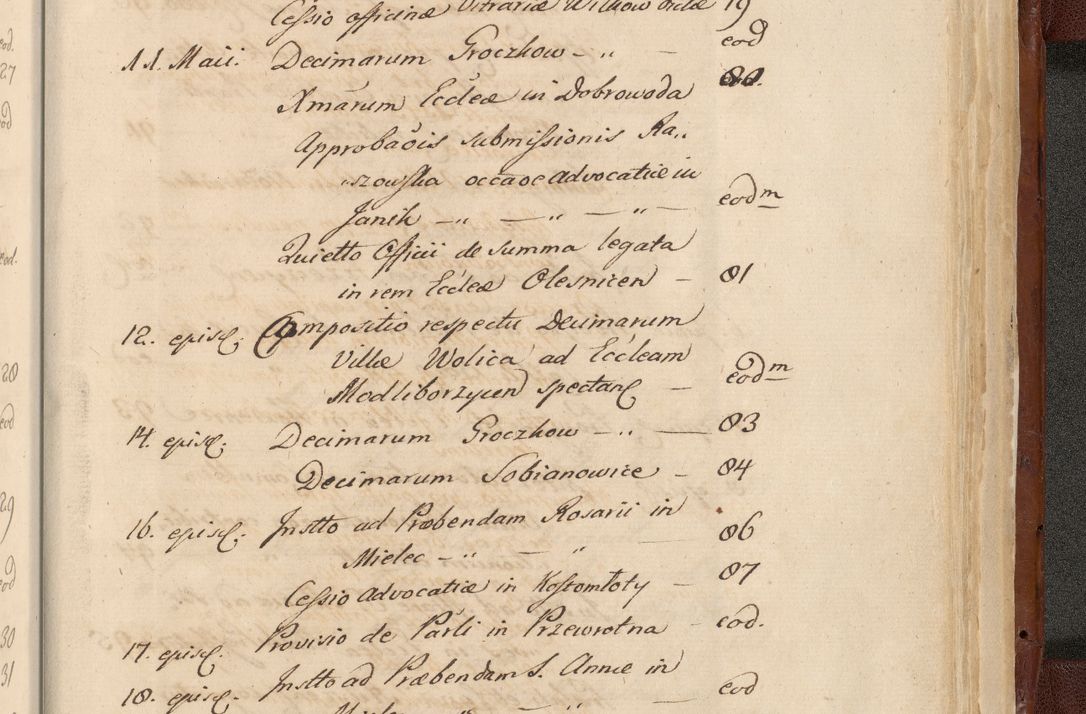 Cessio officinæ Vitrariæ Wilkow 79
11. Maii. Decimarum Groczkow — „ — eod
Xmarum Eccleæ in Dobrowoda 80.
Approbaōis submissionis Ra„
„szowska occãoe advocatiæ in
Janik — „ — „ — „ — eodm
Quietto Officii de summa legata
in rem Eccleæ Olesnicen — 81
12. ejusd. Compositio respectu Decimarum
Villæ Wolica ad Eccleam
Modliborzycen spectan — eodm
14. ejusd. Decimarum Groczkow — „ — 83
Decimarum Sobianowice — 84
16. ejusd. Instto ad Præbendam Rosarii in
Mielec — „ — „ — 86
Cessio Advocatiæ in Kostomłoty — 87
17. ejusd. Provisio de Parli in Przewrotna — eod.
18. ejusd. Instto ad Præbendam S. Annæ in
eod
27
eod
eod.
28
eod
29
eod
30
31